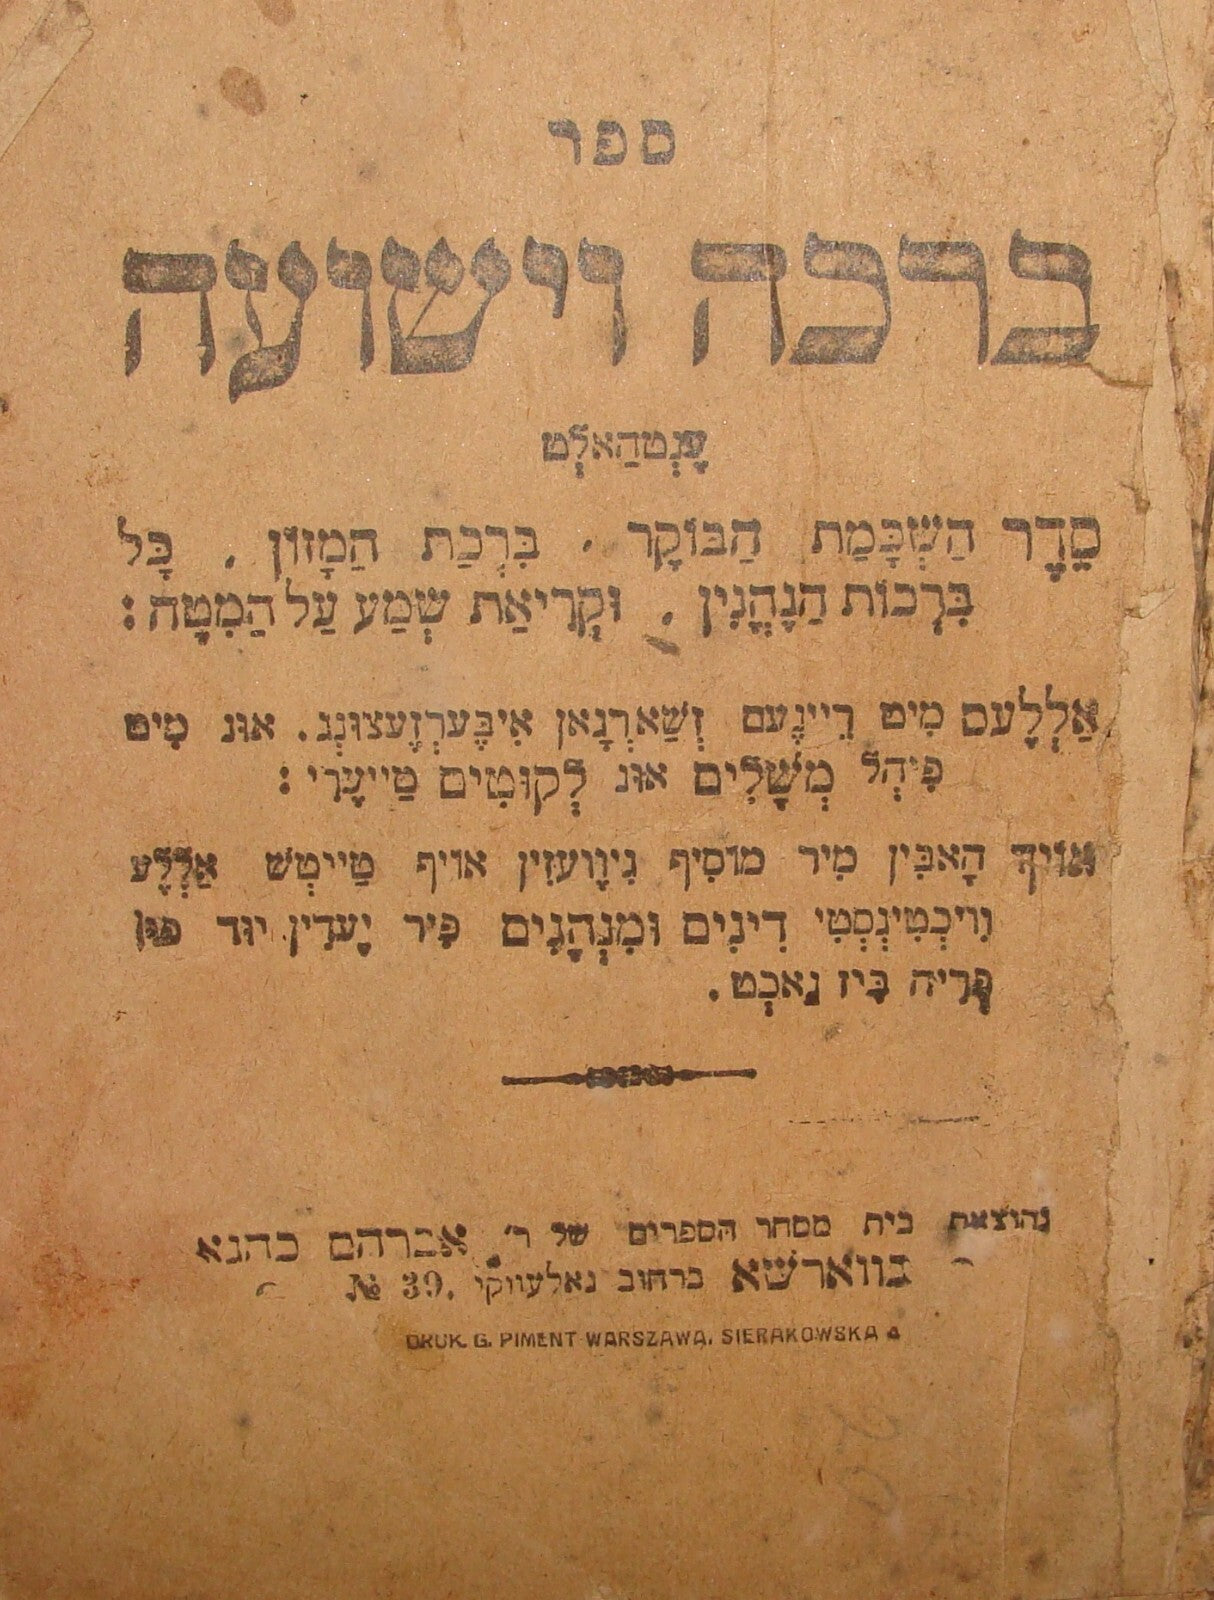 ספר
ברכה וישועה
ענְטהַאלְט
סֵדֶר הַשְׁכָּמַת הַבּוֹקֶר , בִּרְכַּת הַמָזוֹן , כָּל
בִּרְכוֹת הַנֶהֱנִין , וּקְרִיאַת שְׁמַע עַל הַמִטָה :
אַלְלֶעס מִיט רֵיינֶעם זְשַׁארְגָאן אִיבֶּערְזֶעצוּנְג. אוּנ מִיט
פִיהְל מְשָׁלִים אוּנ לְקוּטִים טַייעֶרִי :
אוֹיךְ הָאבִּין מִיר מוֹסִיף גִיוֶועזִין אויף טַייטְשׁ אַלְלֶע
וִויכְטִיגְסְטִי דִינִים וּמִנְהָגִים פִיר יֶעדִין יוּד פוּן
פְרִיה בִּיז נַאכְט.
בהוצאת בית מסחר הספרים של ר׳ אברהם כהנא
בווארשא ברחוב נאלעווקי .39 №
DRUK. G. PIMENT WARSZAWA. SIERAKOWSKA 4